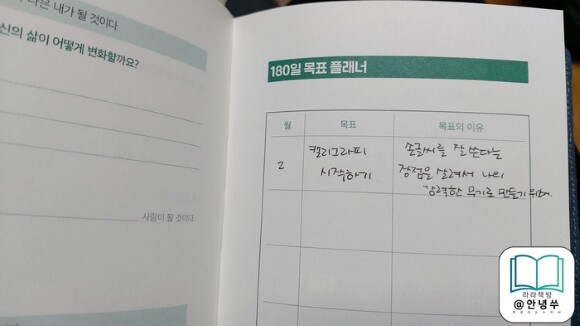 다른 내가 될 것이다.
신의 삶이 어떻게 변화할까요?
사람이 될 것이다.
180일 목표 플래너
월 목표 목표의 이유
2 캘리그라피 손글씨를 잘 쓴다는
시작하기 장점을 살려서 나의
강력한 무기로 만들기 위해.
라라책방
@안녕쑤